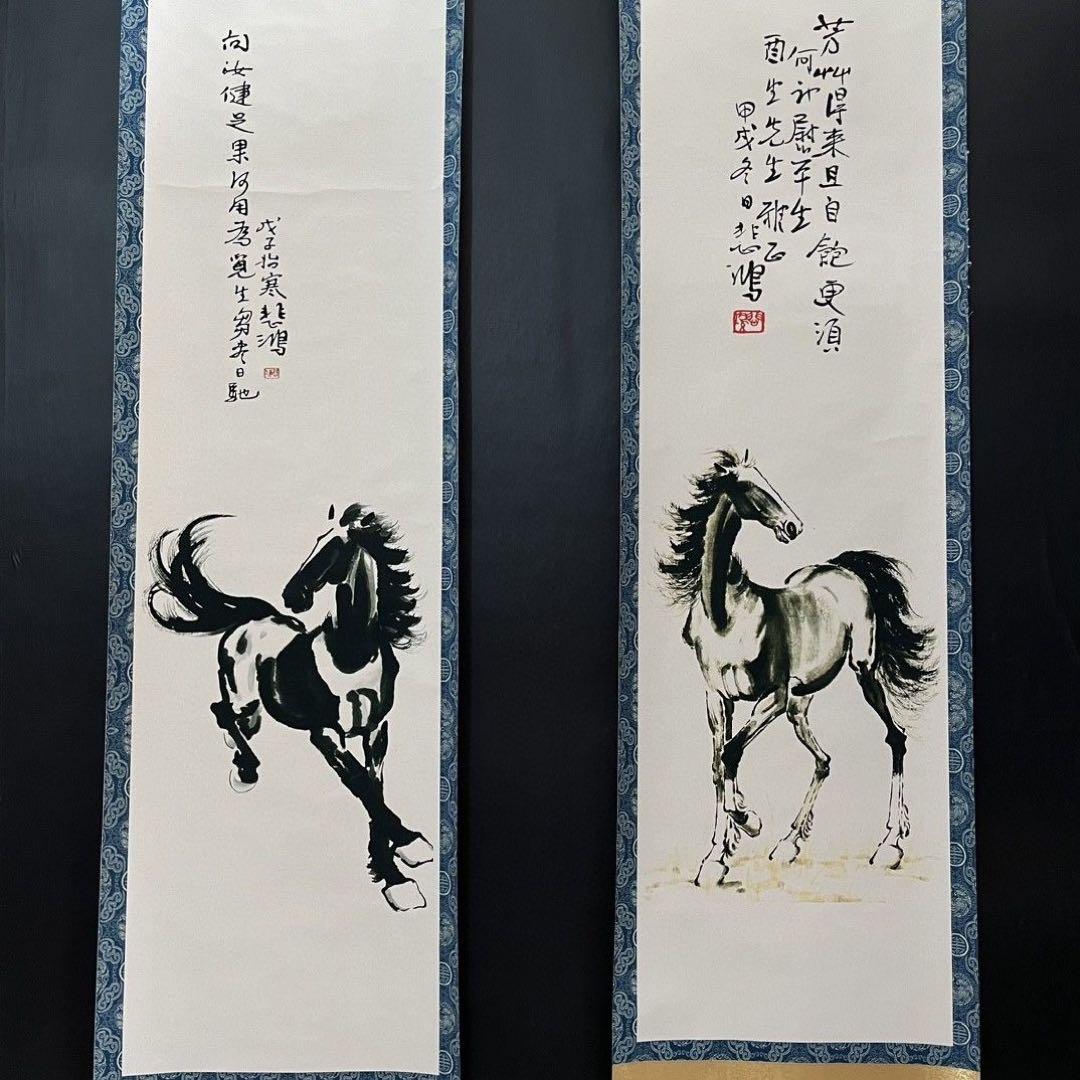 问汝健足果何用為覓生芻尽日馳
戊子始寒悲鴻
芳艸得来且自飽更須
何計慰平生
酉生先生雅正
甲戌冬日悲鴻